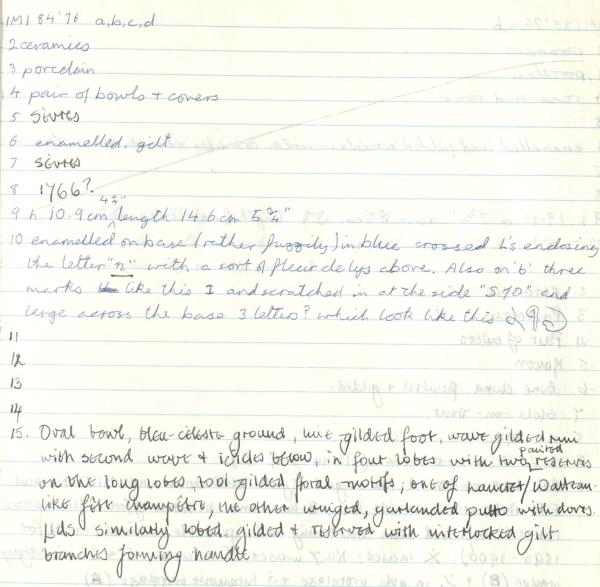 IMI 84'76 a,b,c,d
2 ceramics
3 porcelain
4 pair of bowls + covers
5 Sèvres
6 enamelled. gilt
7 Sèvres
8 1766?
9 h 10.9cm 4¼" length 14.6cm 5¾"
10 enamelled on base (rather fuzzily) in blue crossed L's enclosing
the letter "n" with a sort of fleur de lys above. Also on 'b' three
marks like this I and scratched in at the side "S70" and
large across the base 3 letters? which look like this
11
12
13
14
15. Oval bowl, bleu-céleste ground, gilded foot, wave gilded rim
with second wave + icicles below, in four lobes with two painted reserves
on the long lobes tool gilded floral motifs; one of Lancret/Watteau-
like fête champêtre, the other winged, garlanded putto with doves.
Lids similarly lobed, gilded + reserved with interlocked gilt
branches forming handle